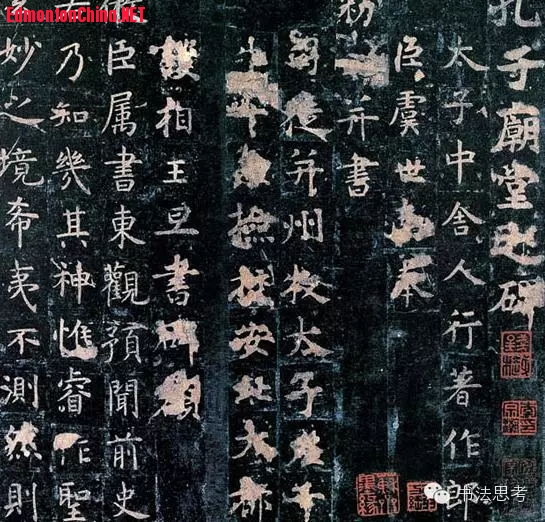 EdmontonChina.NET
孔子廟堂之碑
太子中舍人行著作郎
臣虞世南奉
勑撰并書
司徒并州牧太子左千
牛率兼撿挍安北大都
護相王旦書碑額
臣属書東觀預聞前史
乃知幾其神惟睿作聖
妙之境希夷不測然則
书法思考